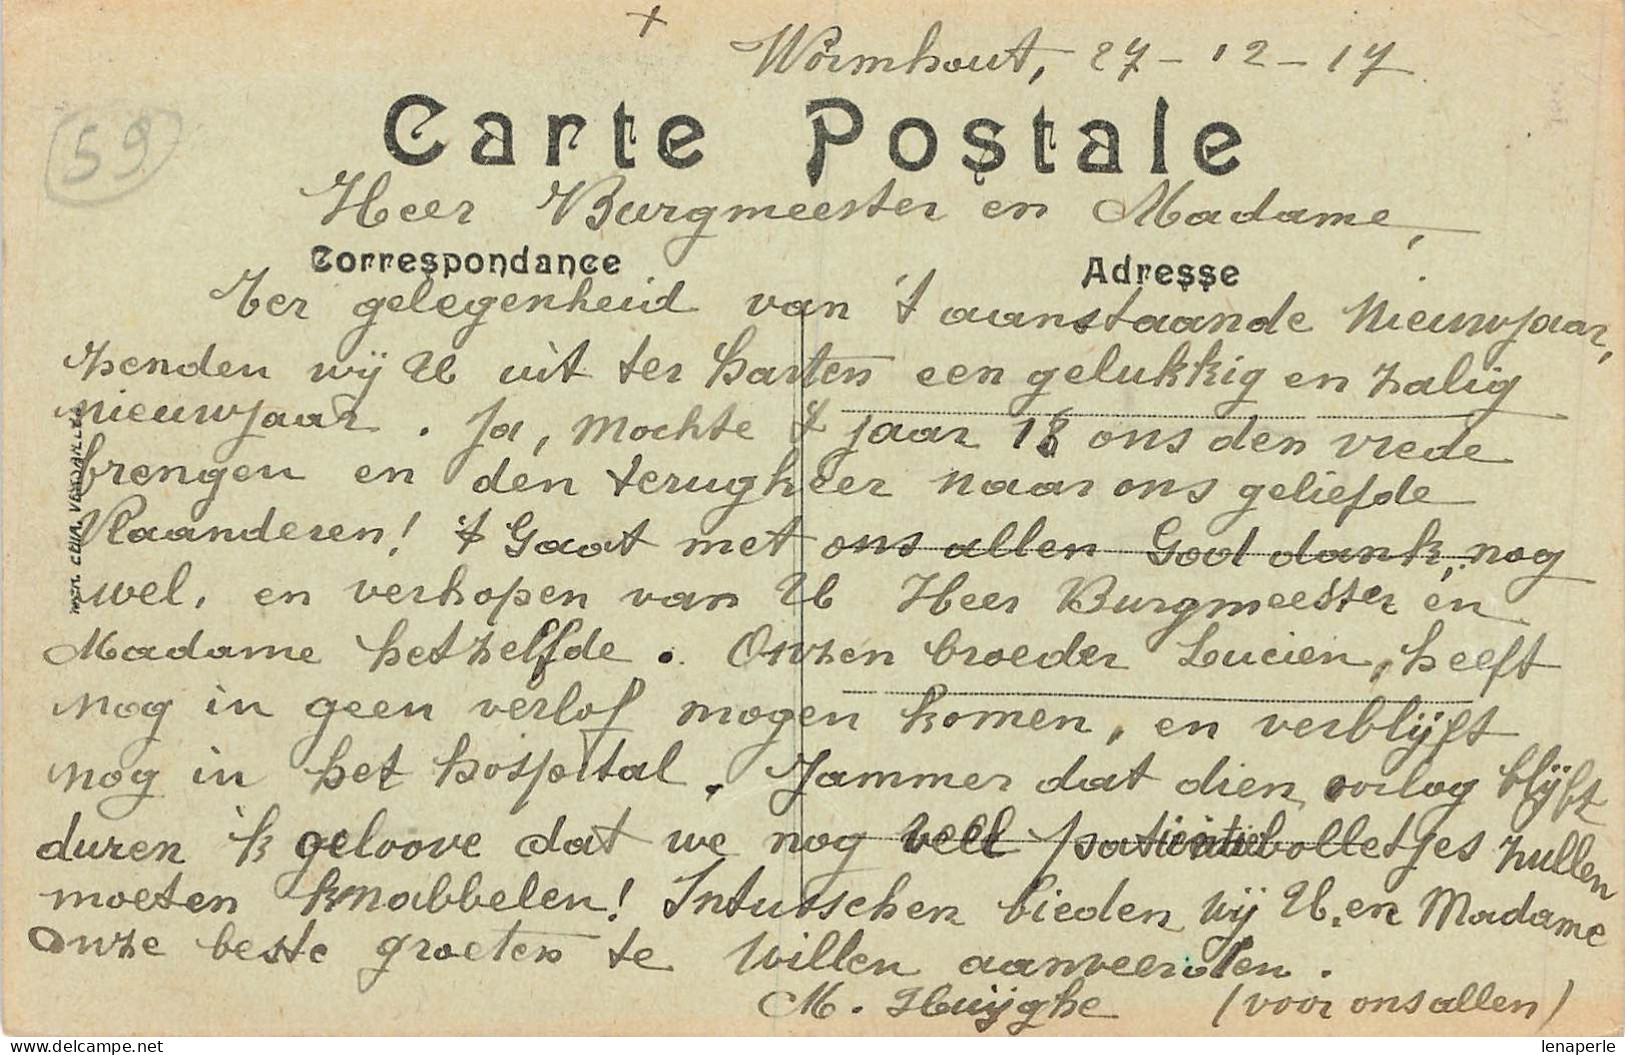 +
Wormhout, 27-12-17
59
Carte Postale
Heer Burgmeester en Madame,
Correspondance
Adresse
Ter gelegenheid van 't aanstaande Nieuwjaar,
zenden wij U uit ter harten een gelukkig en zalig
nieuwjaar. Ja, mochte 't jaar 18 ons den vrede
brengen en den terugkeer naar ons geliefde
Vlaanderen! 't Gaat met ons allen God dank, nog
wel, en verhopen van U Heer Burgmeester en
Madame hetzelfde. Onzen broeder Lucien, heeft
nog in geen verlof mogen komen, en verblijft
nog in het hospital. Jammer dat dien oorlog blijft
duren 'k geloove dat we nog veel patientiebolletjes zullen
moeten knabbelen! Intusschen bieden wij U en Madame
onze beste groeten te willen aanveerden.
M. Huijghe (voor ons allen)
delcampe.net
lenaperle